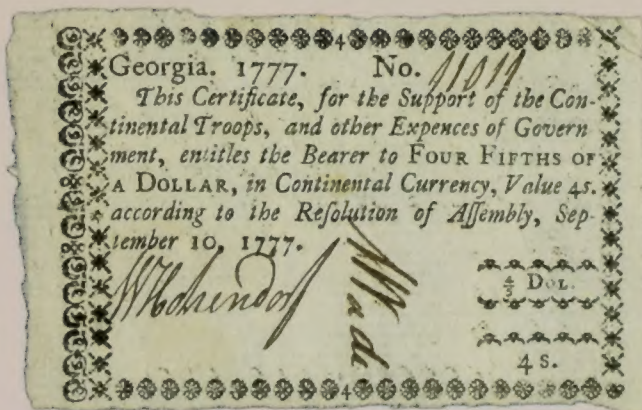 4
Georgia. 1777. No. 11011
This Certificate, for the Support of the Con-
tinental Troops, and other Expences of Govern
ment, entitles the Bearer to FOUR FIFTHS OF
A DOLLAR, in Continental Currency, Value 4s.
according to the Reſolution of Aſſembly, Sep-
tember 10, 1777.
Wade
⅘ DOL.
4 s.
4